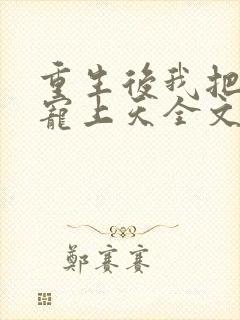 重生後我把
寵上天全文
鄭賽賽